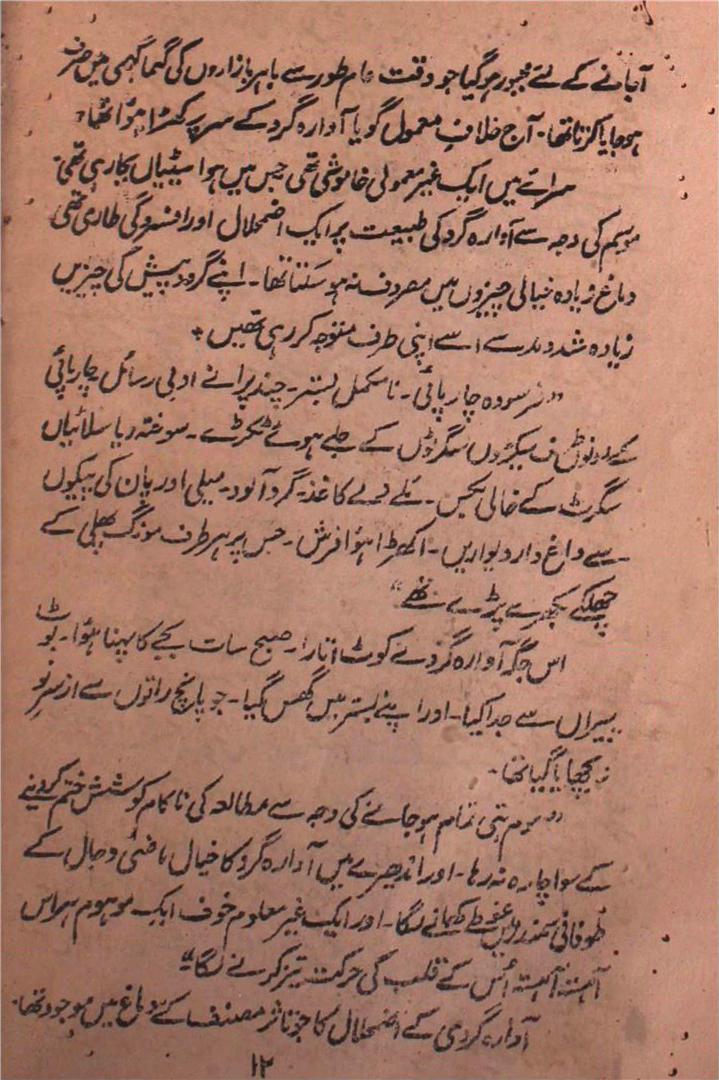 آجانے کے لئے مجبور ہو گیا جو وقت عام طور سے باہر بازاروں کی گہما گہمی میں صرف
ہو جایا کرتا تھا۔ آج خلافِ معمول گویا آوارہ گرد کے سر پر کھڑا ہوا تھا،
سرائے میں ایک غیر معمولی خاموشی تھی جس میں ہوا سیٹیاں بجا رہی تھی۔
موسم کی وجہ سے آوارہ گرد کی طبیعت پر ایک اضمحلال اور افسردگی طاری تھی
دماغ زیادہ خیالی چیزوں میں مصروف نہ ہو سکتا تھا۔ اپنے گرد و پیش کی چیزیں
زیادہ شد و مد سے اسے اپنی طرف متوجہ کر رہی تھیں ؞
”فرسودہ چارپائی۔ نامکمل بستر۔ چند پرانے ادبی رسائل چارپائی
کے دونوں طرف سیکڑوں سگرٹوں کے جلے ہوئے ٹکڑے۔ سوختہ دیا سلائیاں
سگرٹ کے خالی بکس۔ ملے دلے کاغذ۔ گرد آلود۔ میلی اور پان کی پیکوں
سے داغ دار دیواریں۔ اکھڑا ہوا فرش۔ جس پر ہر طرف مونگ پھلی کے
چھلکے بکھرے پڑے تھے“
اس جگہ آوارہ گرد نے کوٹ اتارا۔ صبح سات بجے کا پہنا ہوا۔ بوٹ
پیراں سے جدا کیا۔ اور اپنے بستر میں گھس گیا۔ جو پانچ راتوں سے از سرِ نو
نہ بچھایا گیا تھا۔
”موم بتی تمام ہو جانے کی وجہ سے مطالعہ کی ناکام کوشش ختم کر دینے
کے سوا چارہ نہ رہا۔ اور اندھیرے میں آوارہ گرد کا خیال ماضی و حال کے
طوفانی سمندر میں غوطے کھانے لگا۔ اور ایک غیر معلوم خوف ایک موہوم ہراس
آہستہ آہستہ اُس کے قلب کی حرکت تیز کرنے لگا۔“
آوارہ گردی کے اضمحلال کا جو تاثر مصنف کے دماغ میں موجود تھا۔
۱۲